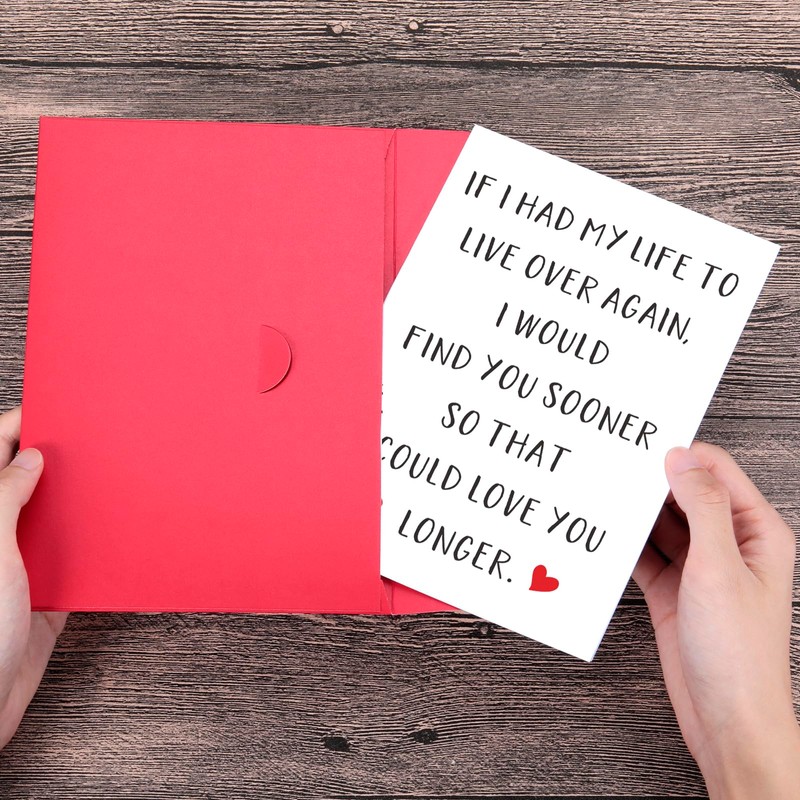 IF I HAD MY LIFE TO
LIVE OVER AGAIN,
I WOULD
FIND YOU SOONER
SO THAT
COULD LOVE YOU
LONGER.